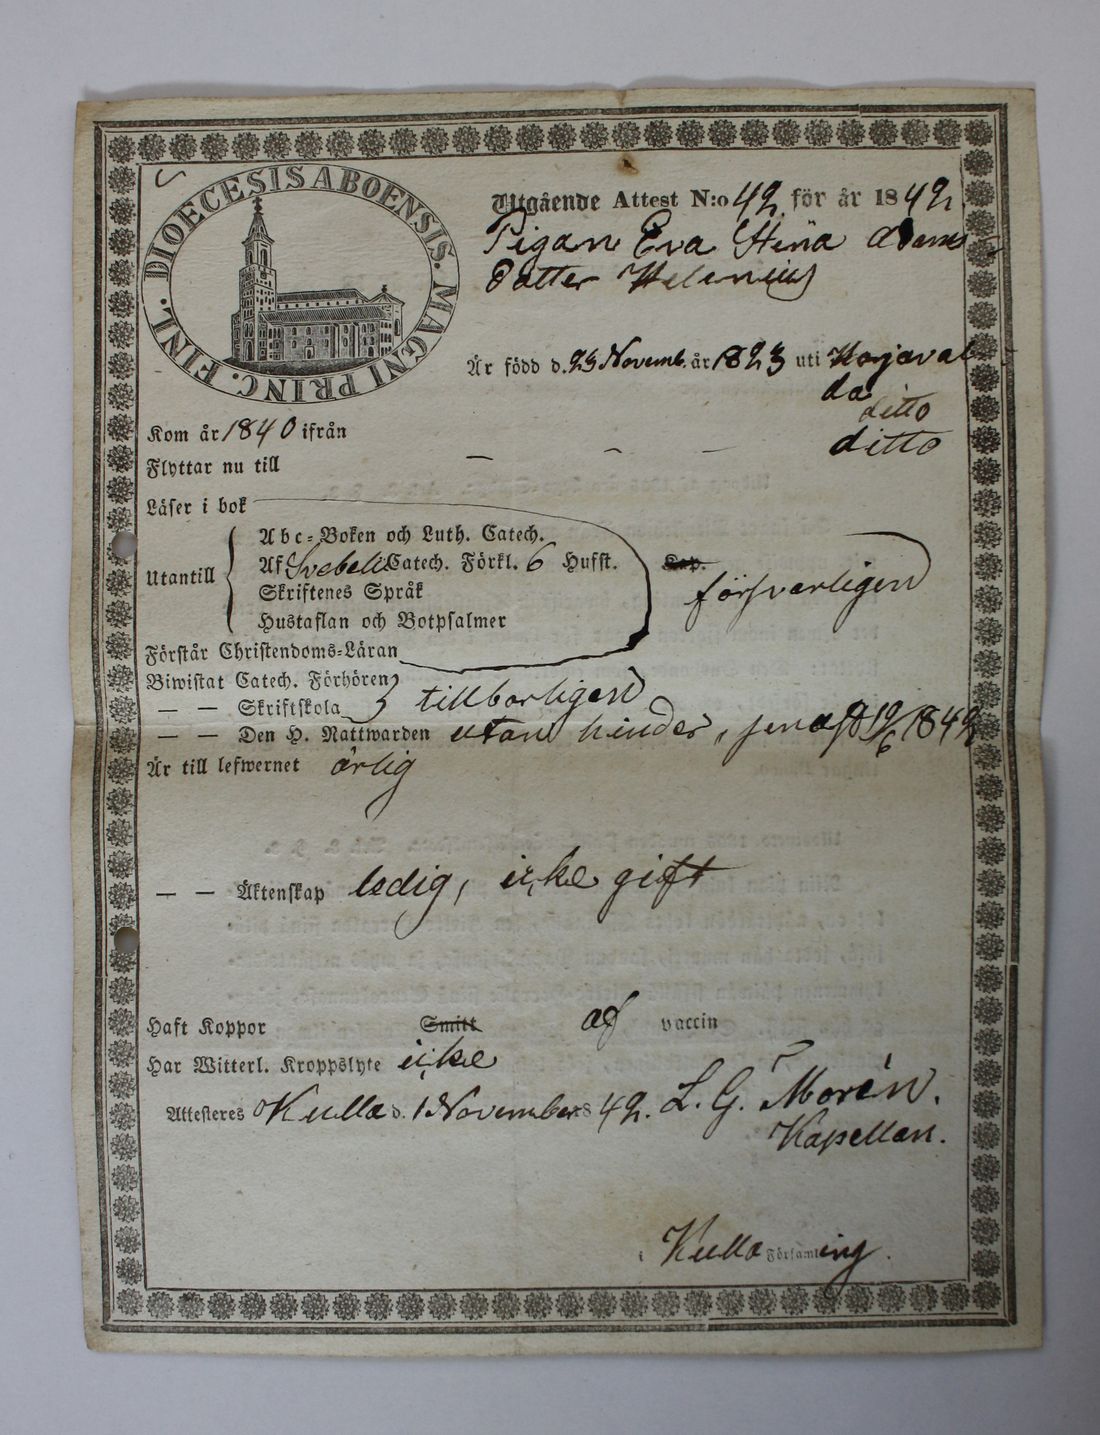 DIOECESIS ABOENSIS. MAGNI PRINC. FINL.
Utgående Attest N:o 42. för år 1842.
Pigan Eva Stina Adams
dotter Helenius
Är född d. 23 Novemb. år 1823 uti Korjaval
da
ditto
Kom år 1840 ifrån
ditto
Flyttar nu till — — —
Läser i bok
Abc-Boken och Luth. Catech.
Utantill
Af Svebeli Catech. Förkl. 6 Hufst. Kap.
försvarligen
Skriftenes Språk
Hustaflan och Botpsalmer
Förstår Christendoms-Läran
Biwistat Catech. Förhören
— — Skriftskola
tillbörligen
— — Den H. Nattwarden utan hinder, senast 19/6 1842
Är till lefwernet ärlig
— — Äktenskap ledig, icke gift
Haft Koppor Smitt af vaccin
Har Witterl. Kroppslyte icke
Attesteras Kulla d. 1 November 18 42. L. G. Morén.
Kapellan.
i Kulla Församling.